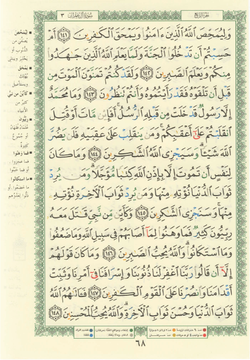 وَلِيُمَحِّصَ اللَّهُ الَّذِينَ ءَامَنُوا وَيَمْحَقَ الْكَٰفِرِينَ ١٤١ أَمْ
حَسِبْتُمْ أَن تَدْخُلُوا الْجَنَّةَ وَلَمَّا يَعْلَمِ اللَّهُ الَّذِينَ جَٰهَدُوا
مِنكُمْ وَيَعْلَمَ الصَّٰبِرِينَ ١٤٢ وَلَقَدْ كُنتُمْ تَمَنَّوْنَ الْمَوْتَ مِن
قَبْلِ أَن تَلْقَوْهُ فَقَدْ رَأَيْتُمُوهُ وَأَنتُمْ تَنظُرُونَ ١٤٣ وَمَا مُحَمَّدٌ
إِلَّا رَسُولٌ قَدْ خَلَتْ مِن قَبْلِهِ الرُّسُلُ أَفَإِيْن مَّاتَ أَوْ قُتِلَ
انقَلَبْتُمْ عَلَىٰ أَعْقَٰبِكُمْ وَمَن يَنقَلِبْ عَلَىٰ عَقِبَيْهِ فَلَن يَضُرَّ
اللَّهَ شَيْـًٔا وَسَيَجْزِي اللَّهُ الشَّٰكِرِينَ ١٤٤ وَمَا كَانَ
لِنَفْسٍ أَن تَمُوتَ إِلَّا بِإِذْنِ اللَّهِ كِتَٰبًا مُّؤَجَّلًا وَمَن يُرِدْ
ثَوَابَ الدُّنْيَا نُؤْتِهِ مِنْهَا وَمَن يُرِدْ ثَوَابَ الْءَاخِرَةِ نُؤْتِهِ
مِنْهَا وَسَنَجْزِي الشَّٰكِرِينَ ١٤٥ وَكَأَيِّن مِّن نَّبِيٍّ قَٰتَلَ مَعَهُ
رِبِّيُّونَ كَثِيرٌ فَمَا وَهَنُوا لِمَا أَصَابَهُمْ فِي سَبِيلِ اللَّهِ وَمَا ضَعُفُوا
وَمَا اسْتَكَانُوا وَاللَّهُ يُحِبُّ الصَّٰبِرِينَ ١٤٦ وَمَا كَانَ قَوْلَهُمْ
إِلَّا أَن قَالُوا رَبَّنَا اغْفِرْ لَنَا ذُنُوبَنَا وَإِسْرَافَنَا فِي أَمْرِنَا وَثَبِّتْ
أَقْدَامَنَا وَانصُرْنَا عَلَى الْقَوْمِ الْكَٰفِرِينَ ١٤٧ فَـَٔاتَىٰهُمُ اللَّهُ
ثَوَابَ الدُّنْيَا وَحُسْنَ ثَوَابِ الْءَاخِرَةِ وَاللَّهُ يُحِبُّ الْمُحْسِنِينَ ١٤٨
٦٨